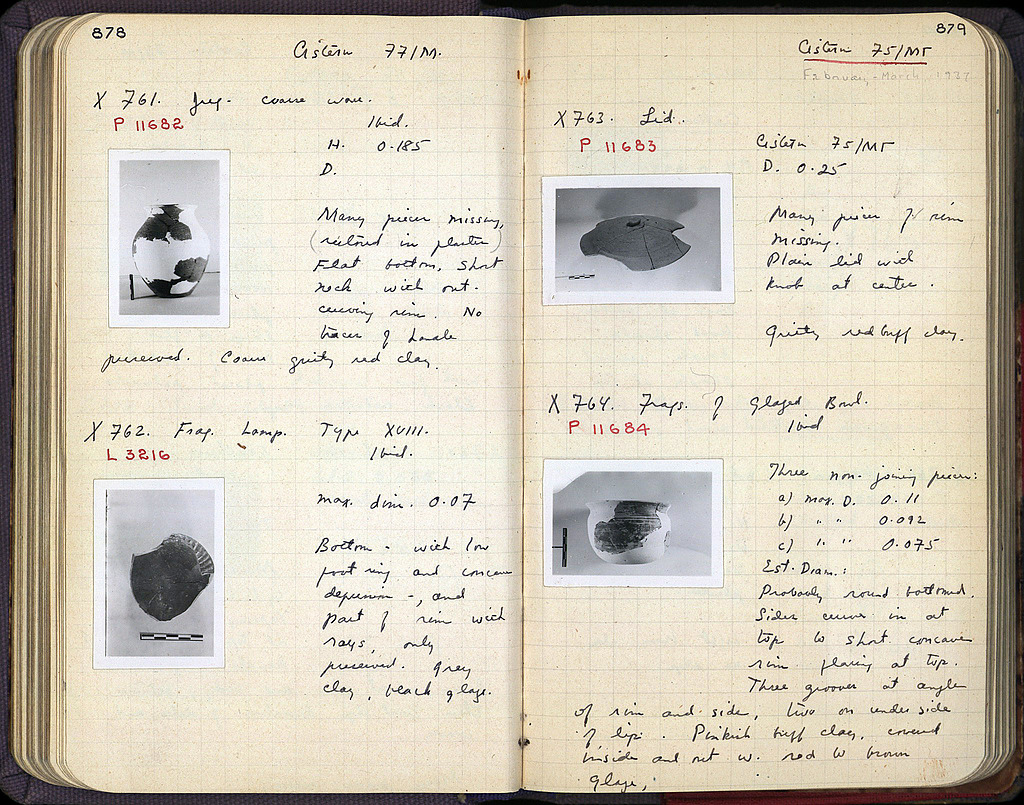 878
Cistern 77/M.
X 761. Jug - coarse ware.
P 11682
Ibid.
H. 0.185
D.
Many pieces missing,
(restored in plaster)
Flat bottom, short
neck with out-
curving rim. No
traces of handle
preserved. Coarse gritty red clay.
X 762. Frag. Lamp. Type XVIII.
L 3216
Ibid.
max. dim. 0.07
Bottom - with low
foot ring and concave
depression -, and
part of rim with
rays, only
preserved. Grey
clay, black glaze.
879
Cistern 75/ΜΓ
February - March, 1937
X 763. Lid.
P 11683
Cistern 75/ΜΓ
D. 0.25
Many pieces of rim
missing.
Plain lid with
knob at center.
Gritty red buff clay.
X 764. Frags. of Glazed Bowl.
P 11684
Ibid
Three non-joining pieces:
a) max. D. 0.11
b) " " 0.092
c) " " 0.075
Est. Diam.:
Probably round bottomed.
Sides curve in at
top to short concave
rim flaring at top.
Three grooves at angle
of rim and side, two on under side
of lip. Pinkish buff clay, covered
inside and out w. red to brown
glaze;